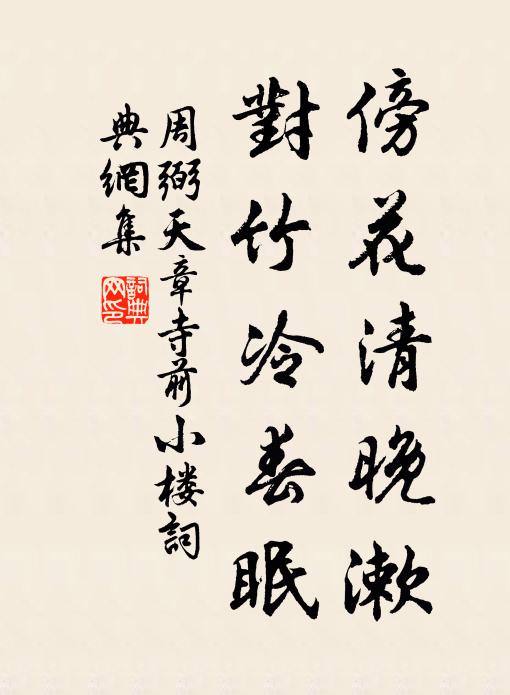 傍花清晚漱
對竹冷春眠
周弼天章寺前小楼詞
典網集
詞典网印